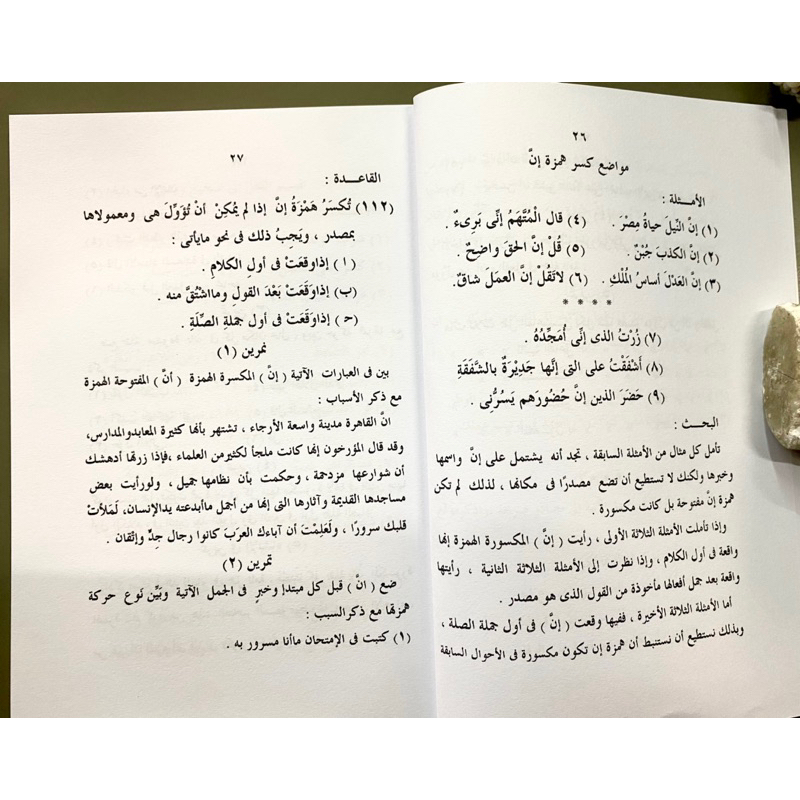 ٢٦
مواضع كسر همزة إنَّ
الأمـثـلة :
(١) إنَّ النِّيلَ حياةُ مِصْرَ . (٤) قال الْمُتَّهَمُ إنِّى بَرِىءٌ .
(٢) إنَّ الكذبَ جُبْنٌ . (٥) قُلْ إنَّ الحقَ واضِحٌ .
(٣) إنَّ العَدْلَ أساسُ المُلْكِ . (٦) لاتَقُلْ إنَّ العمَلَ شاقٌ .
* * * *
(٧) زُرْتُ الذى إنِّى أُمَجِّدُهُ .
(٨) أَشْفَقْتُ على التى إنَّها جَدِيْرَةٌ بالشَّفَقَةِ
(٩) حَضَرَ الذين إنَّ حُضُورَهم يَسُرُّنى .
البحث :
تأمل كل مثال من الأمثلة السابقة ، تجد أنه يشتمل على إنَّ واسمها
وخبرها ولكنك لا تستطيع أن تضع مصدرًا فى مكانها ، لذلك لم تكن
همزة إنَّ مفتوحة بل كانت مكسورة .
وإذا تأملت الأمثلة الثلاثة الأولى ، رأيت ( إنَّ ) المكسورة الهمزة إنها
واقعة فى أول الكلام ، وإذا نظرت إلى الأمثلة الثلاثة الثانية ، رأيتها
واقعة بعد جمل أفعالها مأخوذة من القول الذى هو مصدر .
أما الأمثلة الثلاثة الأخيرة ، ففيها وقعت ( إنَّ ) فى أول جملة الصلة ،
وبذلك نستطيع أن نستنبط أن همزة إن تكون مكسورة فى الأحوال السابقة
٢٧
القاعـدة :
(١١٢) تُكسَرُ هَمْزَةُ إنَّ إذا لم يُمكِنْ أنْ تُؤَوَّلَ هى ومعمولاها
بمصدر ، ويَجبُ ذلك فى نحو مايأتى :
( ا ) إذاوقعَتْ فى أولِ الكلامِ .
(ب) إذاوَقَعَتْ بَعْدَ القولِ ومااشْتُقَّ منه .
(حـ) إذاوَقَعَتْ فى أول جملةِ الصِّلَةِ .
تمرين (١)
بين فى العبارات الآتية ( إنَّ ) المكسرة الهمزة ( أنَّ ) المفتوحة الهمزة
مع ذكر الأسباب :
انَّ القاهرة مدينة واسعة الأرجاء ، تشتهر بأنها كثيرة المعابدوالمدارس،
وقد قال المؤرخون إنها كانت ملجأ لكثيرمن العلماء ،فإذا زرتها أدهشك
أن شوارعها مزدحمة ، وحكمت بأن نظامها جميل ، ولورأيت بعض
مساجدها القديمة وآثارها التى إنها من أجمل ماأبدعته يدالإنسان، لَمَلأتْ
قلبك سرورًا ، ولَعلِمْتَ أن آباءك العربَ كانوا رجال جدٍّ وإتْقان .
تمرين (٢)
ضع ( انَّ ) قبل كل مبتدإ وخبرٍ فى الجمل الآتية وبَيِّن نَوع حركة
همزتها مع ذكرالسبب :
(١) كتبت فى الإمتحان ماأنا مسرور به .